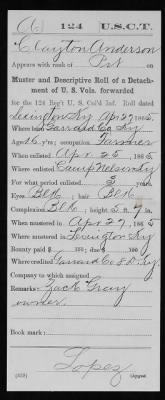 A 124 U.S.C.T.
Clayton Anderson
Appears with rank of Pvt on
Muster and Descriptive Roll of a Detach-
ment of U. S. Vols. forwarded
for the 124 Reg't U. S. Col'd Inf. Roll dated
Lexington Ky Apr 27, 1865.
Where born Garrard Co Ky
Age 26 y'rs; occupation Farmer
When enlisted Apr 25, 1865.
Where enlisted Camp Nelson Ky
For what period enlisted 3 years.
Eyes Blk; hair Blk
Complexion Blk; height 5 ft. 7 in.
When mustered in Apr 27, 1865.
Where mustered in Lexington Ky
Bounty paid $ 100; due $ 100
Where credited Garrard Co 8 D Ky
Company to which assigned
Remarks: Zack Gray
owner.
Book mark:
Lopez
(339) Copyist.